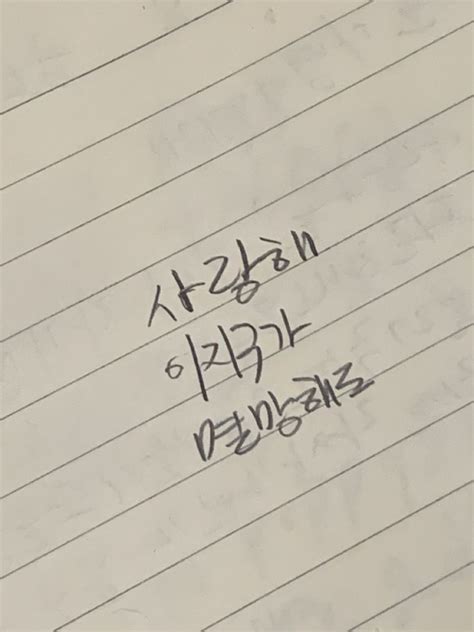 사랑해
이지구가
멸망해도